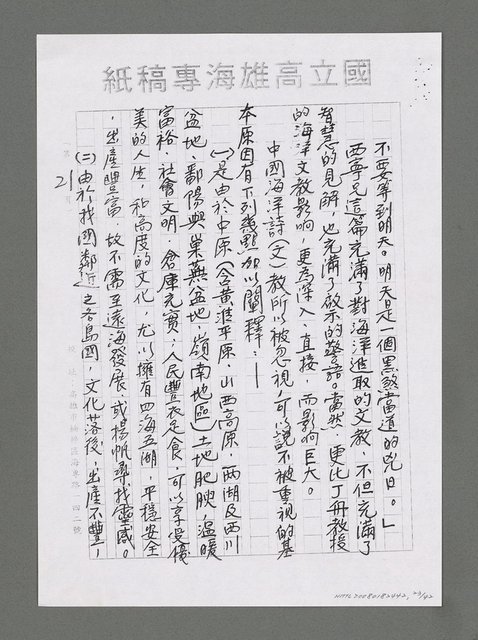 國立高雄海專稿紙
不要等到明天。明天是一個黑煞當道的凶日。」
西寧兄這篇充滿了對海洋進取的文教，不但充滿了
智慧的見解，也充滿了啟示的警語。當然，更比丁冊教授
的海洋文教影响，更為深入、直接，而影响巨大。
中國海洋詩（文）教所以被忽視，可以說不被重視的基
本原因有下列幾點加以闡釋：—
㈠是由於中原（含黃淮平原，山西高原，兩湖及四川
盆地、鄱陽與巢蕪盆地，嶺南地區）土地肥腴，溫暖
富裕，社會文明，倉庫充實，人民豐衣足食，可以享受優
美的人生，和高度的文化，尤以擁有四海五湖，平穩安全
，出產豐富，故不需至遠海發展，或揚帆尋找靈感。
㈡由於我國鄰近之各島國，文化落後，出產不豐，
21
校址：高雄市楠梓區海專路一四二號
NMTL20080182442, 23/42